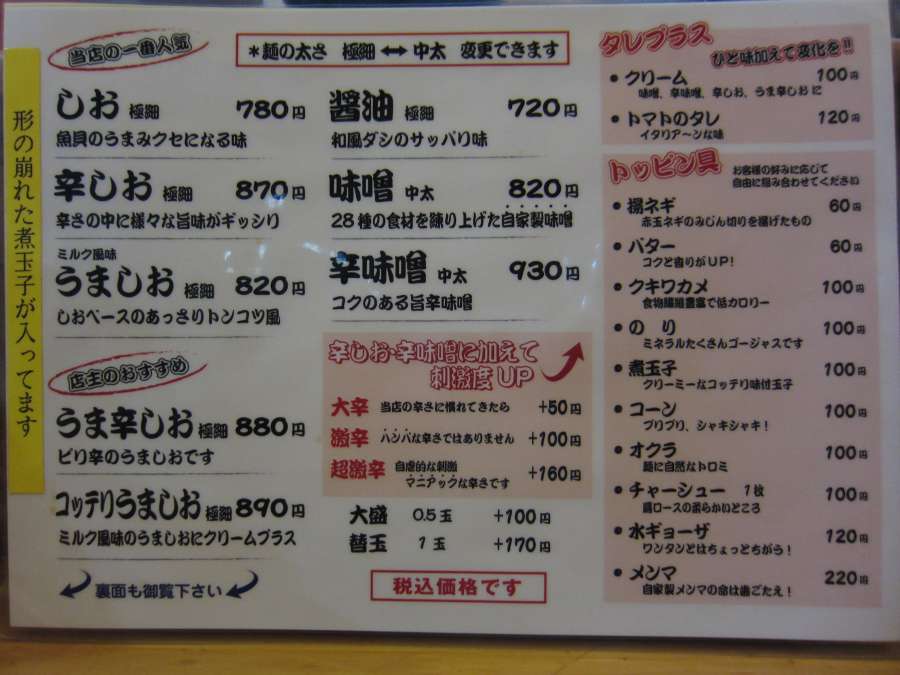 形の崩れた煮玉子が入ってます
当店の一番人気
＊麺の太さ 極細 ↔ 中太 変更できます
しお 極細 780円
魚貝のうまみクセになる味
辛しお 極細 870円
辛さの中に様々な旨味がギッシリ
ミルク風味
うましお 極細 820円
しおベースのあっさりトンコツ風
店主のおすすめ
うま辛しお 極細 880円
ピリ辛のうましおです
コッテリうましお 極細 890円
ミルク風味のうましおにクリームプラス
裏面も御覧下さい
醤油 極細 720円
和風ダシのサッパリ味
味噌 中太 820円
28種の食材を練り上げた自家製味噌
辛味噌 中太 930円
コクのある旨辛味噌
辛しお・辛味噌に加えて
刺激度UP
大辛 当店の辛さに慣れてきたら +50円
激辛 ハンパな辛さではありません +100円
超激辛 自虐的な刺激 マニアックな辛さです +160円
大盛 0.5玉 +100円
替玉 1玉 +170円
税込価格です
タレプラス
ひと味加えて変化を!!
・クリーム 100円
味噌、辛味噌、辛しお、うま辛しおに
・トマトのタレ 120円
イタリア〜ンな味
トッピン具
お客様の好みに応じて
自由に組み合わせてください
・揚ネギ 60円
赤玉ネギのみじん切りを揚げたもの
・バター 60円
コクと香りがUP!
・クキワカメ 100円
食物繊維豊富で低カロリー
・のり 100円
ミネラルたくさんゴージャスです
・煮玉子 100円
クリーミーなコッテリ味付玉子
・コーン 100円
プリプリ、シャキシャキ!
・オクラ 100円
麺に自然なトロミ
・チャーシュー 1枚 100円
肩ロースの柔らかいところ
・水ギョーザ 120円
ワンタンとはちょっとちがう!
・メンマ 220円
自家製メンマの命は歯ごたえ!